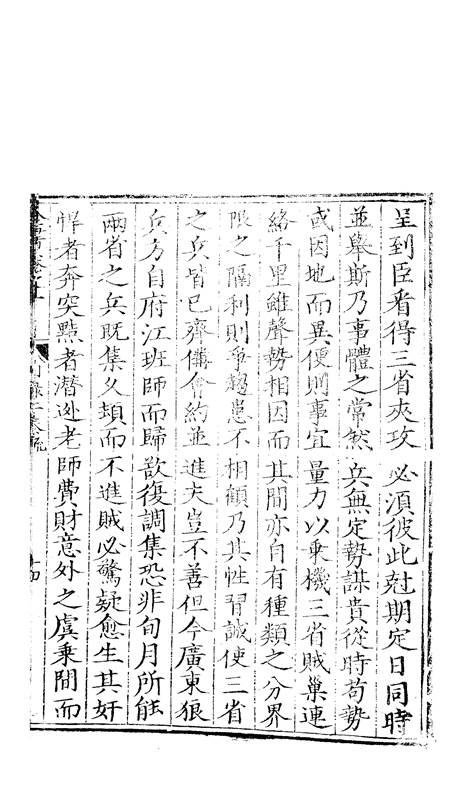 呈到臣看得三省夾攻必須彼此尅期定日同時
並舉斯乃事體之常然兵無定勢謀貴從時苟勢
或因地而異便則事宜量力以乗機三省賊巢連
絡千里雖聲勢相因而其間亦自有種類之分界
限之隔利則爭趨患不相顧乃其性習誠使三省
之兵皆已齊備會約並進夫豈不善但今廣東狼
兵方自府江班師而歸欲復調集恐非旬月所能
兩省之兵既集久頓而不進賊必驚疑愈生其奸
悍者奔突黠者潜逃老師費財意外之虞乗間而